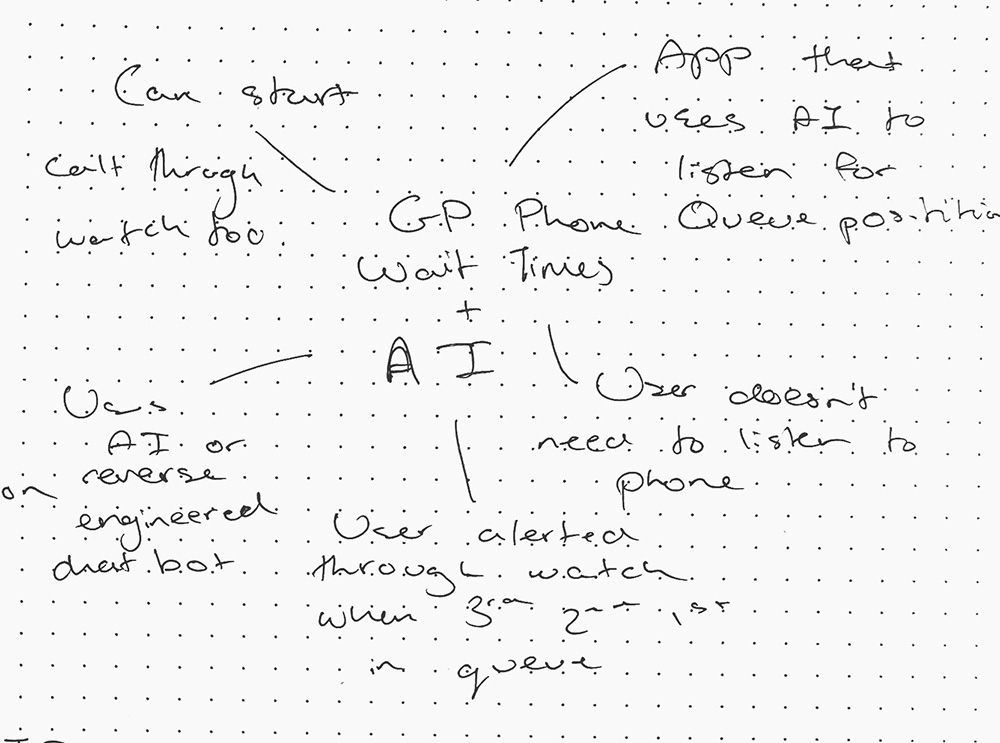 Can start
call through
watch too.
App that
uses AI to
listen for
Queue position
GP Phone
Wait Times
+
AI
User doesn't
need to listen to
phone
User alerted
through watch
when 3rd 2nd 1st
in queue
Uses
AI or
reverse
engineered
chat bot
on